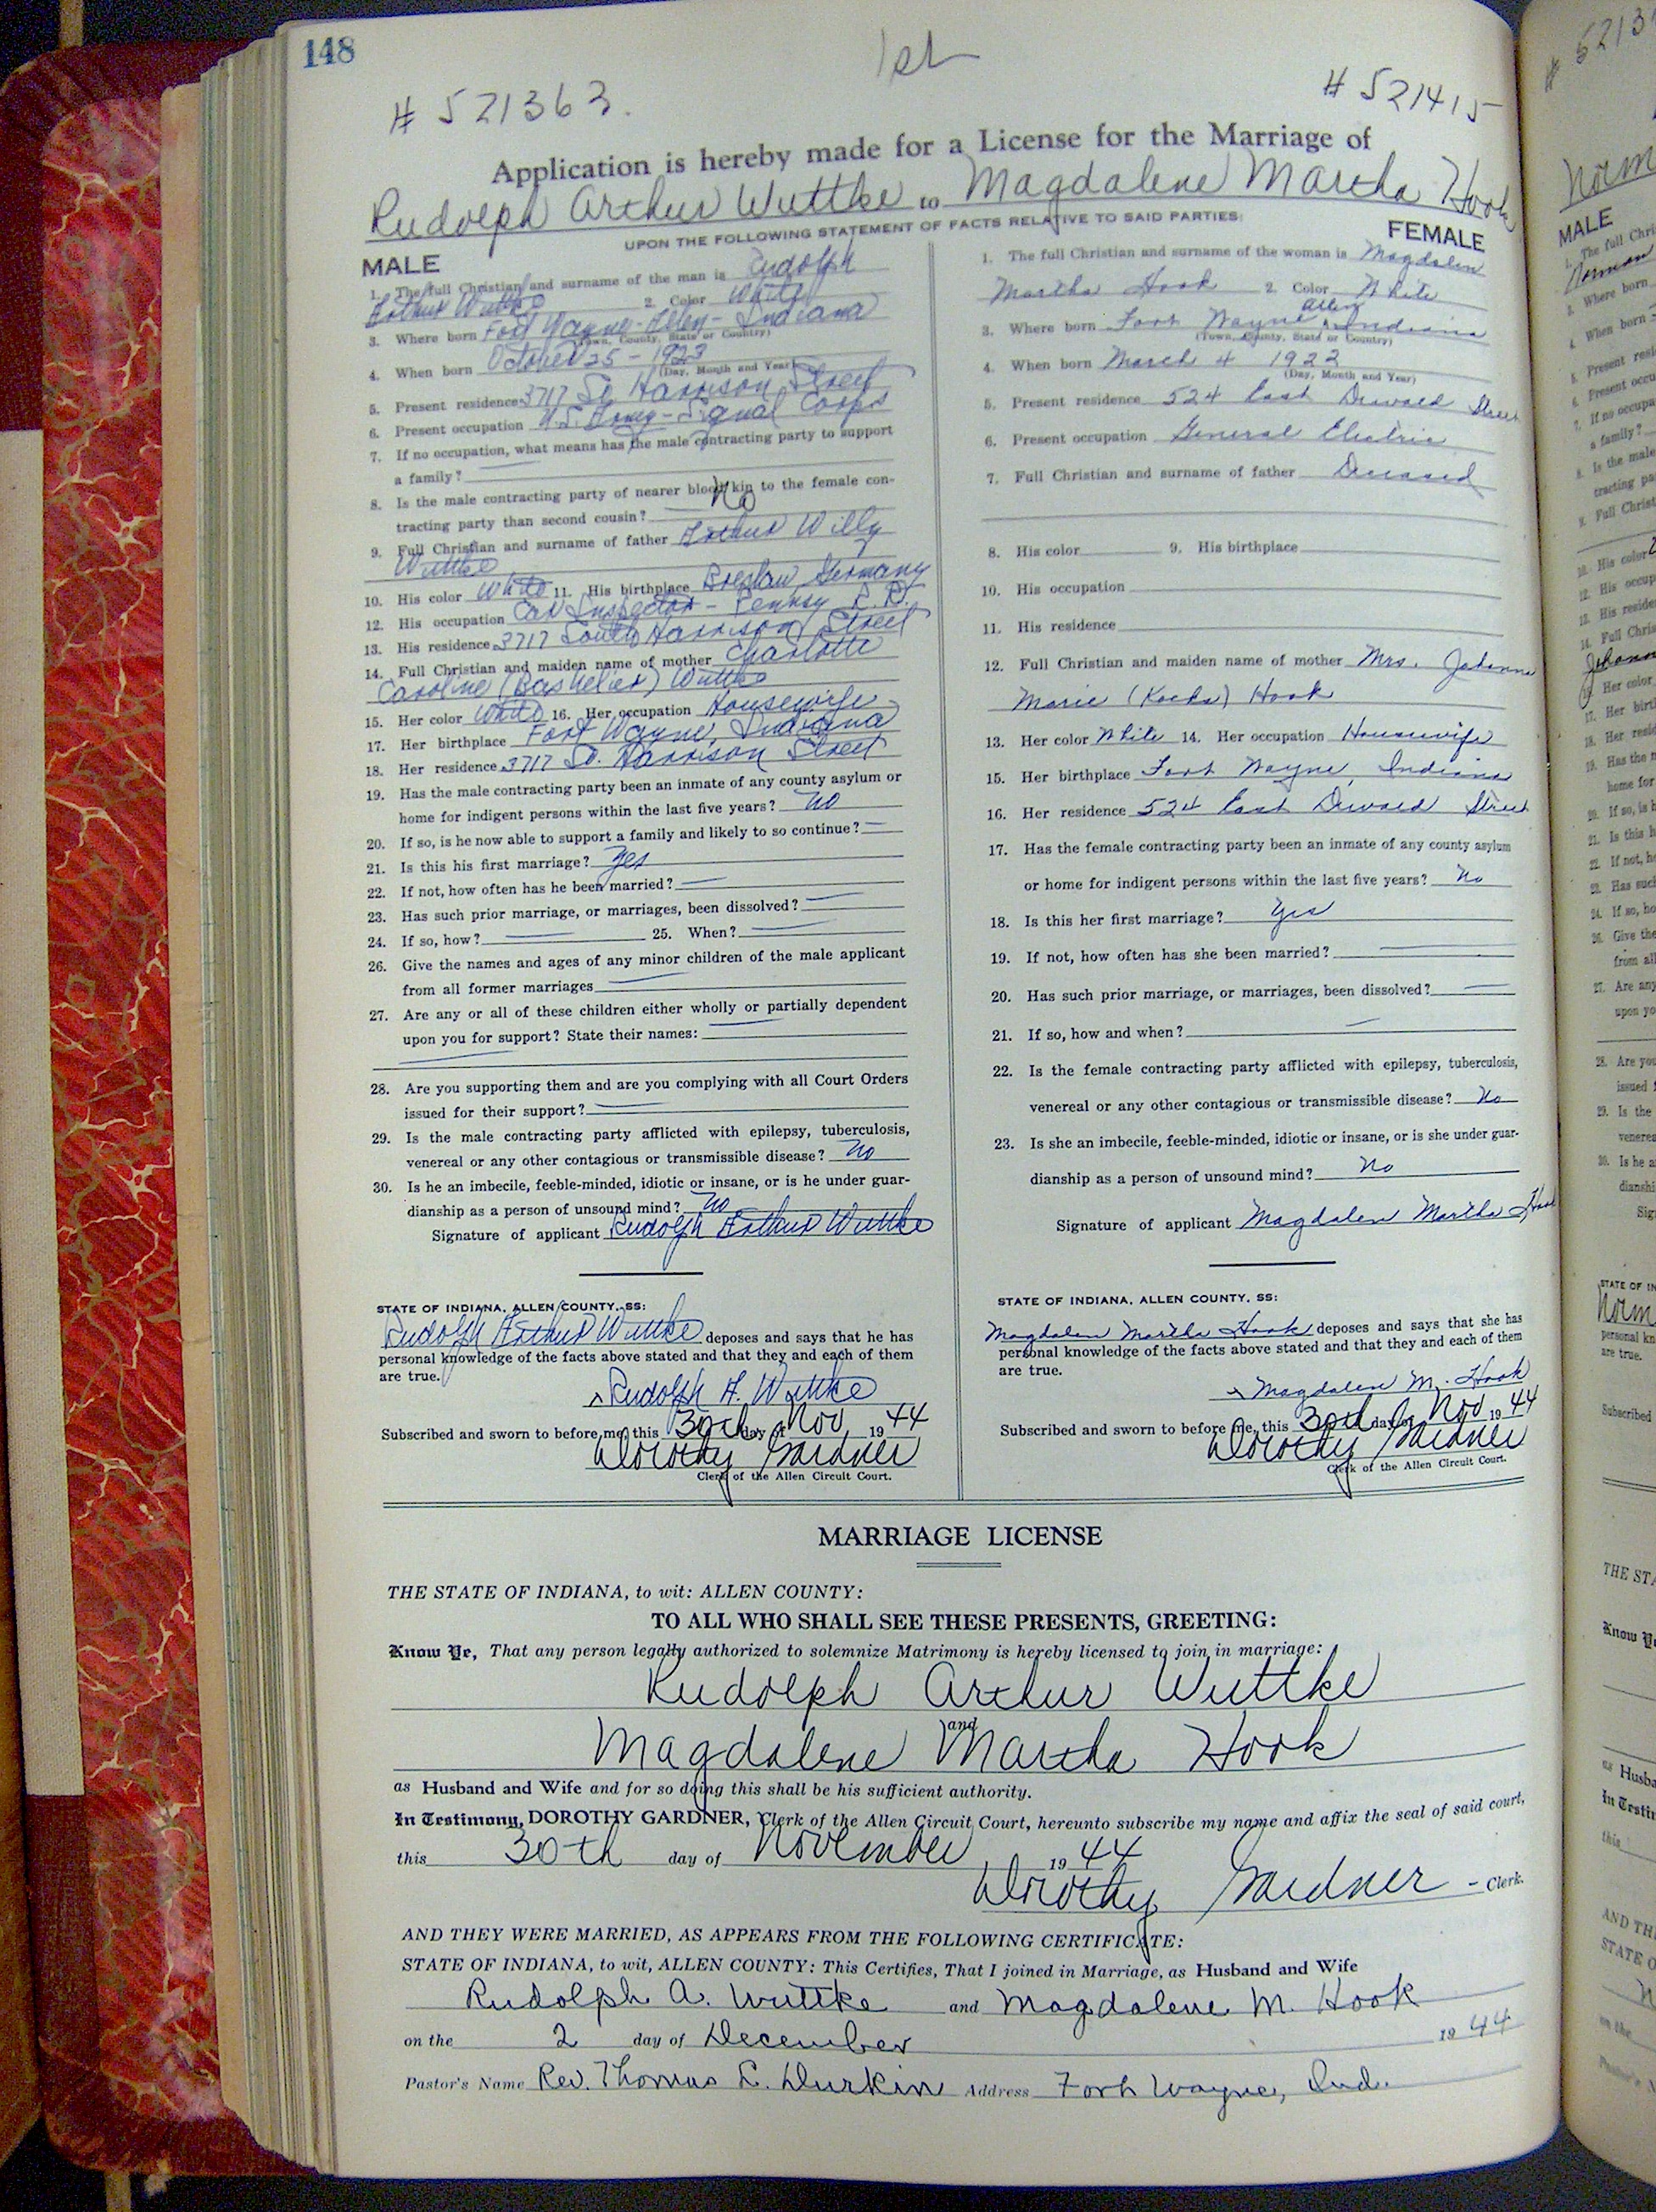 148
1st
# 521363.
# 521415
Application is hereby made for a License for the Marriage of
Rudolph Arthur Wuttke to Magdalene Martha Hook
UPON THE FOLLOWING STATEMENT OF FACTS RELATIVE TO SAID PARTIES:
MALE
1. The full Christian and surname of the man is Rudolph
Arthur Wuttke 2. Color White
3. Where born Fort Wayne-Allen-Indiana
(Town, County, State or Country)
4. When born October 25 - 1923
(Day, Month and Year)
5. Present residence 3717 So. Harrison Street
6. Present occupation U.S. Army-Signal Corps
7. If no occupation, what means has the male contracting party to support
a family?
8. Is the male contracting party of nearer blood kin to the female con-
tracting party than second cousin? No
9. Full Christian and surname of father Arthur Willy
Wuttke
10. His color White 11. His birthplace Breslau, Germany
12. His occupation Car Inspector - Pennsy R.R.
13. His residence 3717 South Harrison Street
14. Full Christian and maiden name of mother Charlotte
Caroline (Bashelier) Wuttke
15. Her color White 16. Her occupation Housewife
17. Her birthplace Fort Wayne, Indiana
18. Her residence 3717 So. Harrison Street
19. Has the male contracting party been an inmate of any county asylum or
home for indigent persons within the last five years? No
20. If so, is he now able to support a family and likely to so continue? —
21. Is this his first marriage? Yes
22. If not, how often has he been married? —
23. Has such prior marriage, or marriages, been dissolved? —
24. If so, how? — 25. When? —
26. Give the names and ages of any minor children of the male applicant
from all former marriages —
27. Are any or all of these children either wholly or partially dependent
upon you for support? State their names: —
28. Are you supporting them and are you complying with all Court Orders
issued for their support? —
29. Is the male contracting party afflicted with epilepsy, tuberculosis,
venereal or any other contagious or transmissible disease? No
30. Is he an imbecile, feeble-minded, idiotic or insane, or is he under guar-
dianship as a person of unsound mind? No
Signature of applicant Rudolph Arthur Wuttke
STATE OF INDIANA, ALLEN COUNTY, SS:
Rudolph Arthur Wuttke deposes and says that he has
personal knowledge of the facts above stated and that they and each of them
are true.
x Rudolph A. Wuttke
Subscribed and sworn to before me, this 30th day of Nov 1944
Dorothy Gardner
Clerk of the Allen Circuit Court.
FEMALE
1. The full Christian and surname of the woman is Magdalen
Martha Hook 2. Color White
3. Where born Fort Wayne, Allen, Indiana
(Town, County, State or Country)
4. When born March 4 1922
(Day, Month and Year)
5. Present residence 524 East Dewald Street
6. Present occupation General Electric
7. Full Christian and surname of father Deceased
8. His color 9. His birthplace
10. His occupation
11. His residence
12. Full Christian and maiden name of mother Mrs. Johanna
Marie (Kocks) Hook
13. Her color White 14. Her occupation Housewife
15. Her birthplace Fort Wayne, Indiana
16. Her residence 524 East Dewald Street
17. Has the female contracting party been an inmate of any county asylum
or home for indigent persons within the last five years? No
18. Is this her first marriage? Yes
19. If not, how often has she been married? —
20. Has such prior marriage, or marriages, been dissolved? —
21. If so, how and when? —
22. Is the female contracting party afflicted with epilepsy, tuberculosis,
venereal or any other contagious or transmissible disease? No
23. Is she an imbecile, feeble-minded, idiotic or insane, or is she under guar-
dianship as a person of unsound mind? No
Signature of applicant Magdalen Martha Hook
STATE OF INDIANA, ALLEN COUNTY, SS:
Magdalen Martha Hook deposes and says that she has
personal knowledge of the facts above stated and that they and each of them
are true.
x Magdalen M. Hook
Subscribed and sworn to before me, this 30th day of Nov 1944
Dorothy Gardner
Clerk of the Allen Circuit Court.
MARRIAGE LICENSE
THE STATE OF INDIANA, to wit: ALLEN COUNTY:
TO ALL WHO SHALL SEE THESE PRESENTS, GREETING:
Know Ye, That any person legally authorized to solemnize Matrimony is hereby licensed to join in marriage:
Rudolph Arthur Wuttke
and
Magdalene Martha Hook
as Husband and Wife and for so doing this shall be his sufficient authority.
In Testimony, DOROTHY GARDNER, Clerk of the Allen Circuit Court, hereunto subscribe my name and affix the seal of said court,
this 30th day of November 1944
Dorothy Gardner - Clerk.
AND THEY WERE MARRIED, AS APPEARS FROM THE FOLLOWING CERTIFICATE:
STATE OF INDIANA, to wit, ALLEN COUNTY: This Certifies, That I joined in Marriage, as Husband and Wife
Rudolph A. Wuttke and Magdalene M. Hook
on the 2 day of December 1944
Pastor's Name Rev. Thomas L. Durkin Address Fort Wayne, Ind.